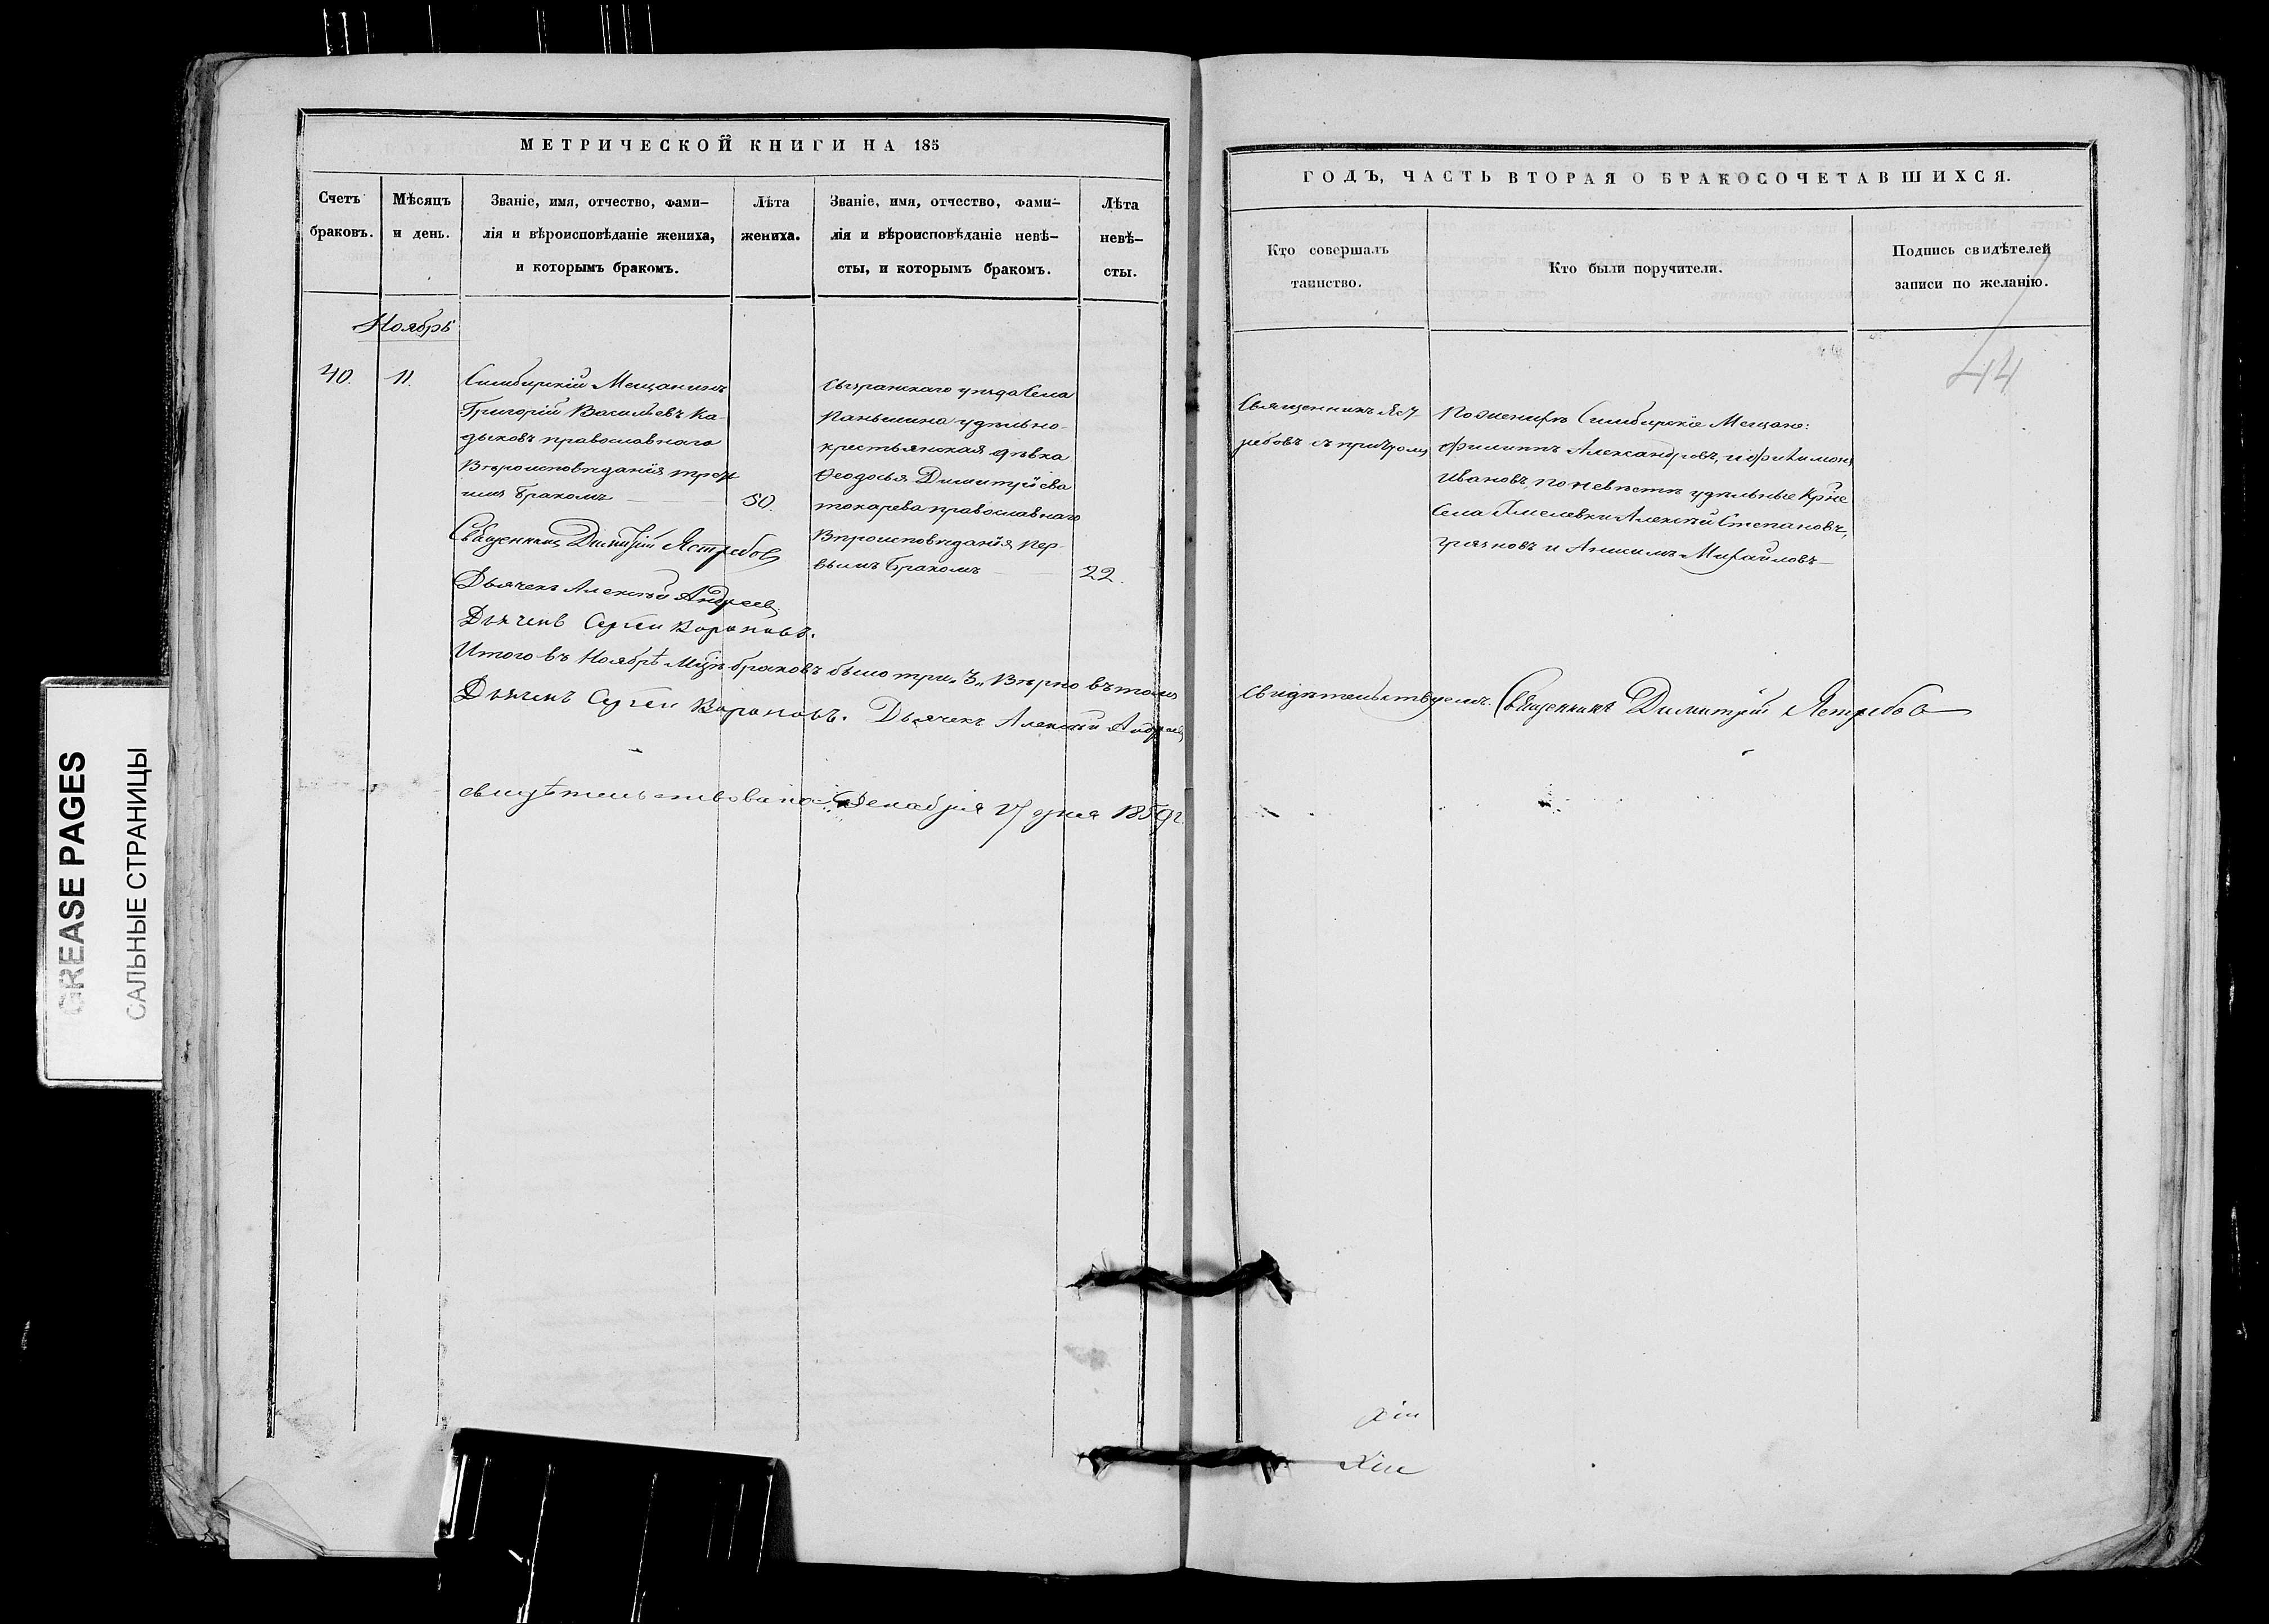 МЕТРИЧЕСКОЙ КНИГИ НА 185
Счетъ браковъ.
Мѣсяцъ и день.
Званіе, имя, отчество, фами-
лія и вѣроисповѣданіе жениха,
и которымъ бракомъ.
Лѣта жениха.
Званіе, имя, отчество, фами-
лія и вѣроисповѣданіе невѣ-
сты, и которымъ бракомъ.
Лѣта невѣ-
сты.
Ноябрь
40.
11.
Симбирскій Мещанинъ
Григорій Васильевъ Ка-
дыковъ православнаго
Вѣроисповѣданія треть
имъ бракомъ
50.
Сызранскаго уѣзда Села
Паньшина удѣльно-
крестьянская дѣвка
Ѳеодосья Димитріева
токарева православнаго
Вѣроисповѣданія пер-
вымъ бракомъ
22.
Священникъ Димитрій Ястребов
Дьячекъ Алексѣй Андреев
Дьячекъ Сергей Вороновъ.
Итого въ Ноябрѣ Мцѣ браковъ было три „3„ Вѣрно въ томъ
Дьячекъ Сергей Вороновъ. Дьячекъ Алексѣй Андреев
свидѣтельствована Декабря 27 дня 1859 г.
ГОДЪ, ЧАСТЬ ВТОРАЯ О БРАКОСОЧЕТАВШИХСЯ.
Кто совершалъ
таинство.
Кто были поручители.
Подпись свидѣтелей
записи по желанію.
44
Священникъ Яст-
ребовъ съ причтомъ
По женихѣ Симбирскіе Мещане:
Филиппъ Александровъ, и Филимонъ
Ивановъ, по невѣстѣ удѣльные Крне
Села Хмелевки Алексѣй Степановъ,
и Анисимъ Михайловъ
свидѣтельствуемъ. Священникъ Димитрій Ястребов
GREASE PAGES
САЛЬНЫЕ СТРАНИЦЫ